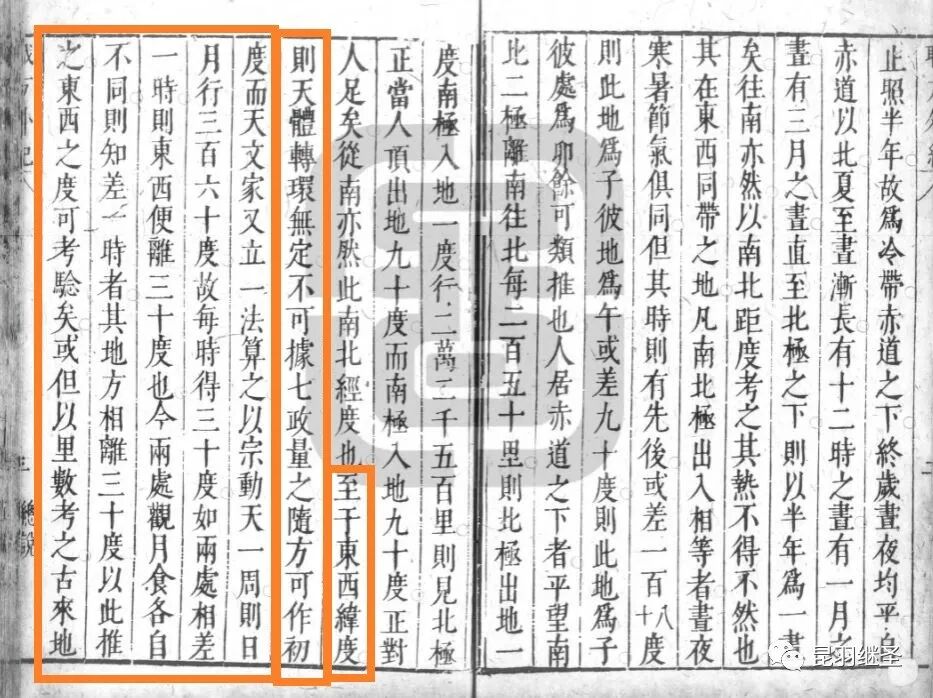 止照半年故為冷帶赤道之下終歲晝夜均平自
赤道以北夏至晝漸長有十二時之晝有一月之
晝有三月之晝直至北極之下則以半年為一晝
矣往南亦然以南北距度考之其熱不得不然也
其在東西同帶之地凡南北極出入相等者晝夜
寒暑節氣俱同但其時則有先後或差一百八十度
則此地為子彼地為午或差九十度則此地為子
彼處為卯餘可類推也人居赤道之下者平望南
北二極離南往北每二百五十里則北極出地一
度南極入地一度行二萬二千五百里則見北極
正當人頂出地九十度而南極入地九十度正對
人足矣從南亦然此南北經度也至于東西緯度
則天體轉環無定不可據七政量之隨方可作初
度而天文家又立一法算之以宗動天一周則日
月行三百六十度故每時得三十度如兩處相差
一時則東西便離三十度也今兩處觀月食各自
不同則知差一時者其地方相離三十度以此推
之東西之度可考驗矣或但以里數考之古來地
三 總說
昆羽继圣